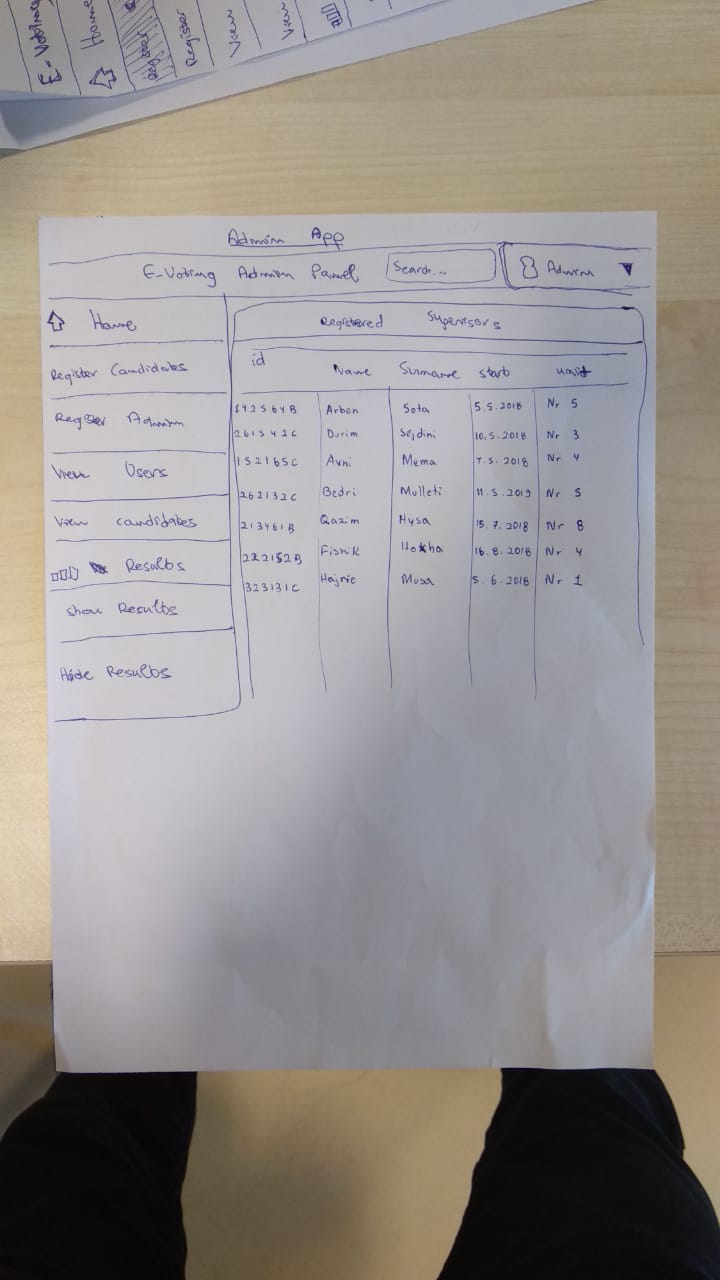 E-Voting
Home
Register
Register
View
View
Admin App
E-Voting Admin Panel
Search...
Admin
Home
Register Candidates
Register Admin
View Users
View candidates
Results
Show Results
Hide Results
Registered Supervisors
id Name Surname start unit
142564B Arben Sota 5.5.2018 Nr 5
261542C Durim Sejdini 10.5.2018 Nr 3
152165C Avni Mema 7.5.2018 Nr 4
262132C Bedri Mulleti 11.5.2019 Nr 5
213461B Qazim Hysa 15.7.2018 Nr 8
222152B Fisnik Hoxha 16.8.2018 Nr 4
323131C Hajrie Musa 5.6.2018 Nr 1